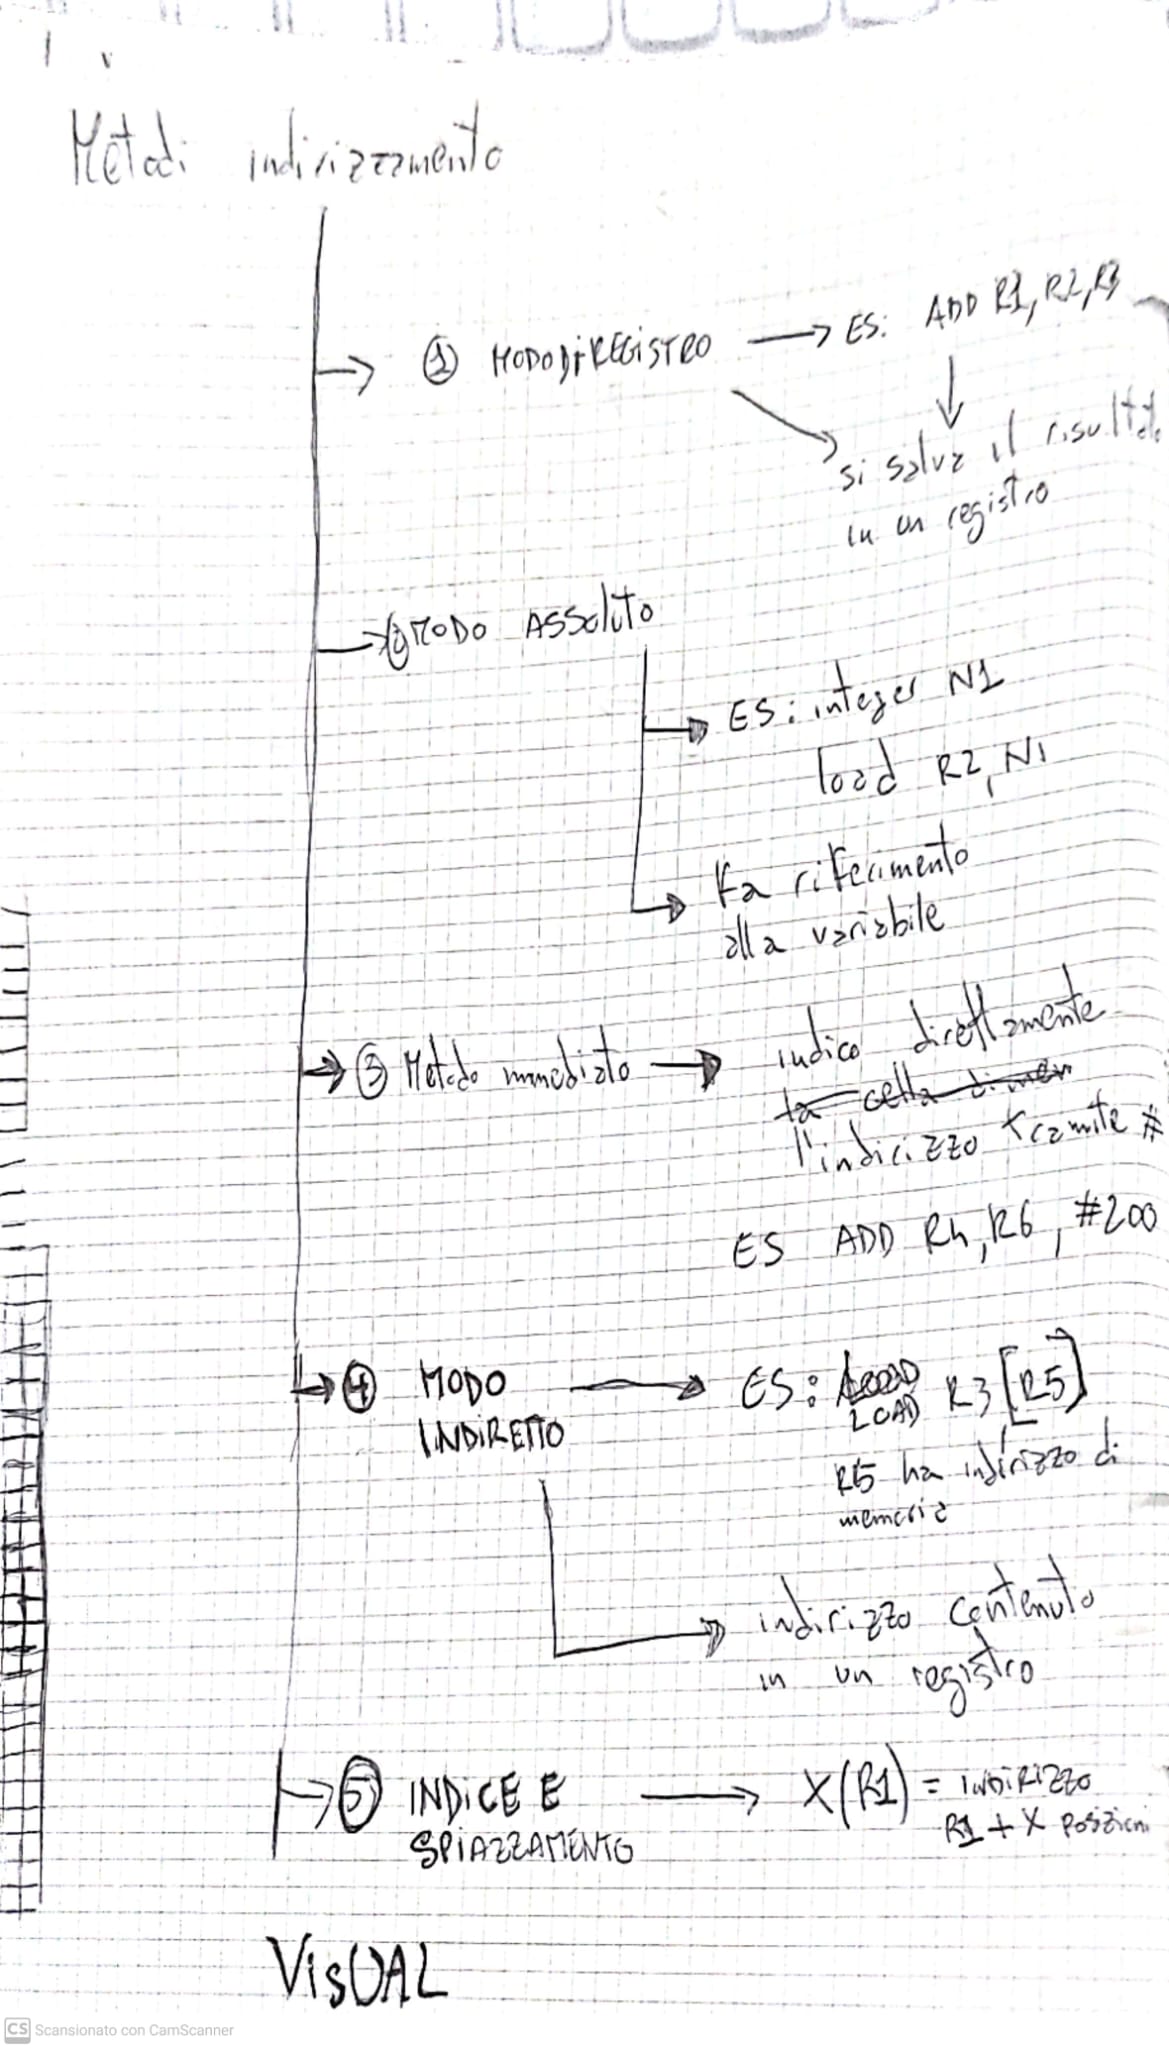 Metodi indirizzamento
① MODO DI REGISTRO → ES: ADD R1, R2, R3
si salva il risultato
in un registro
② MODO ASSOLUTO
ES: integer N1
load R2, N1
Fa riferimento
alla variabile
③ Metodo immediato → indico direttamente
la cella di mem
l'indirizzo tramite #
ES ADD R4, R6, #200
④ MODO
INDIRETTO
ES: LOAD
LOAD R3 [R5]
R5 ha indirizzo di
memoria
indirizzo contenuto
in un registro
⑤ INDICE E
SPIAZZAMENTO
X(R1) = INDIRIZZO
R1 + X posizioni
VisUAL
CS Scansionato con CamScanner